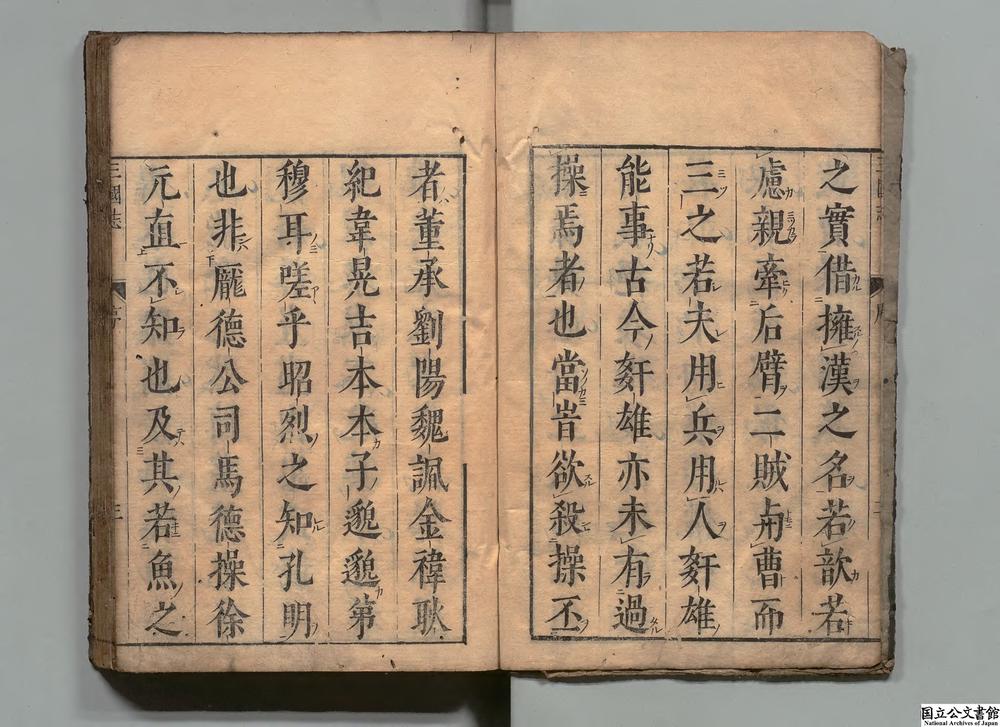 之實借擁漢之名若歆若
慮親牽后臂二賊與曹而
三之若夫用兵用人姧雄
能事古今姧雄亦未有過
操焉者也當旹欲殺操不
者董承劉陽魏諷金禕耿
紀韋晃吉本本子邈邈第
穆耳嗟乎昭烈之知孔明
也非龐德公司馬德操徐
元直不知也及其若魚之
三國志
序
三
国立公文書館
National Archives of Japan